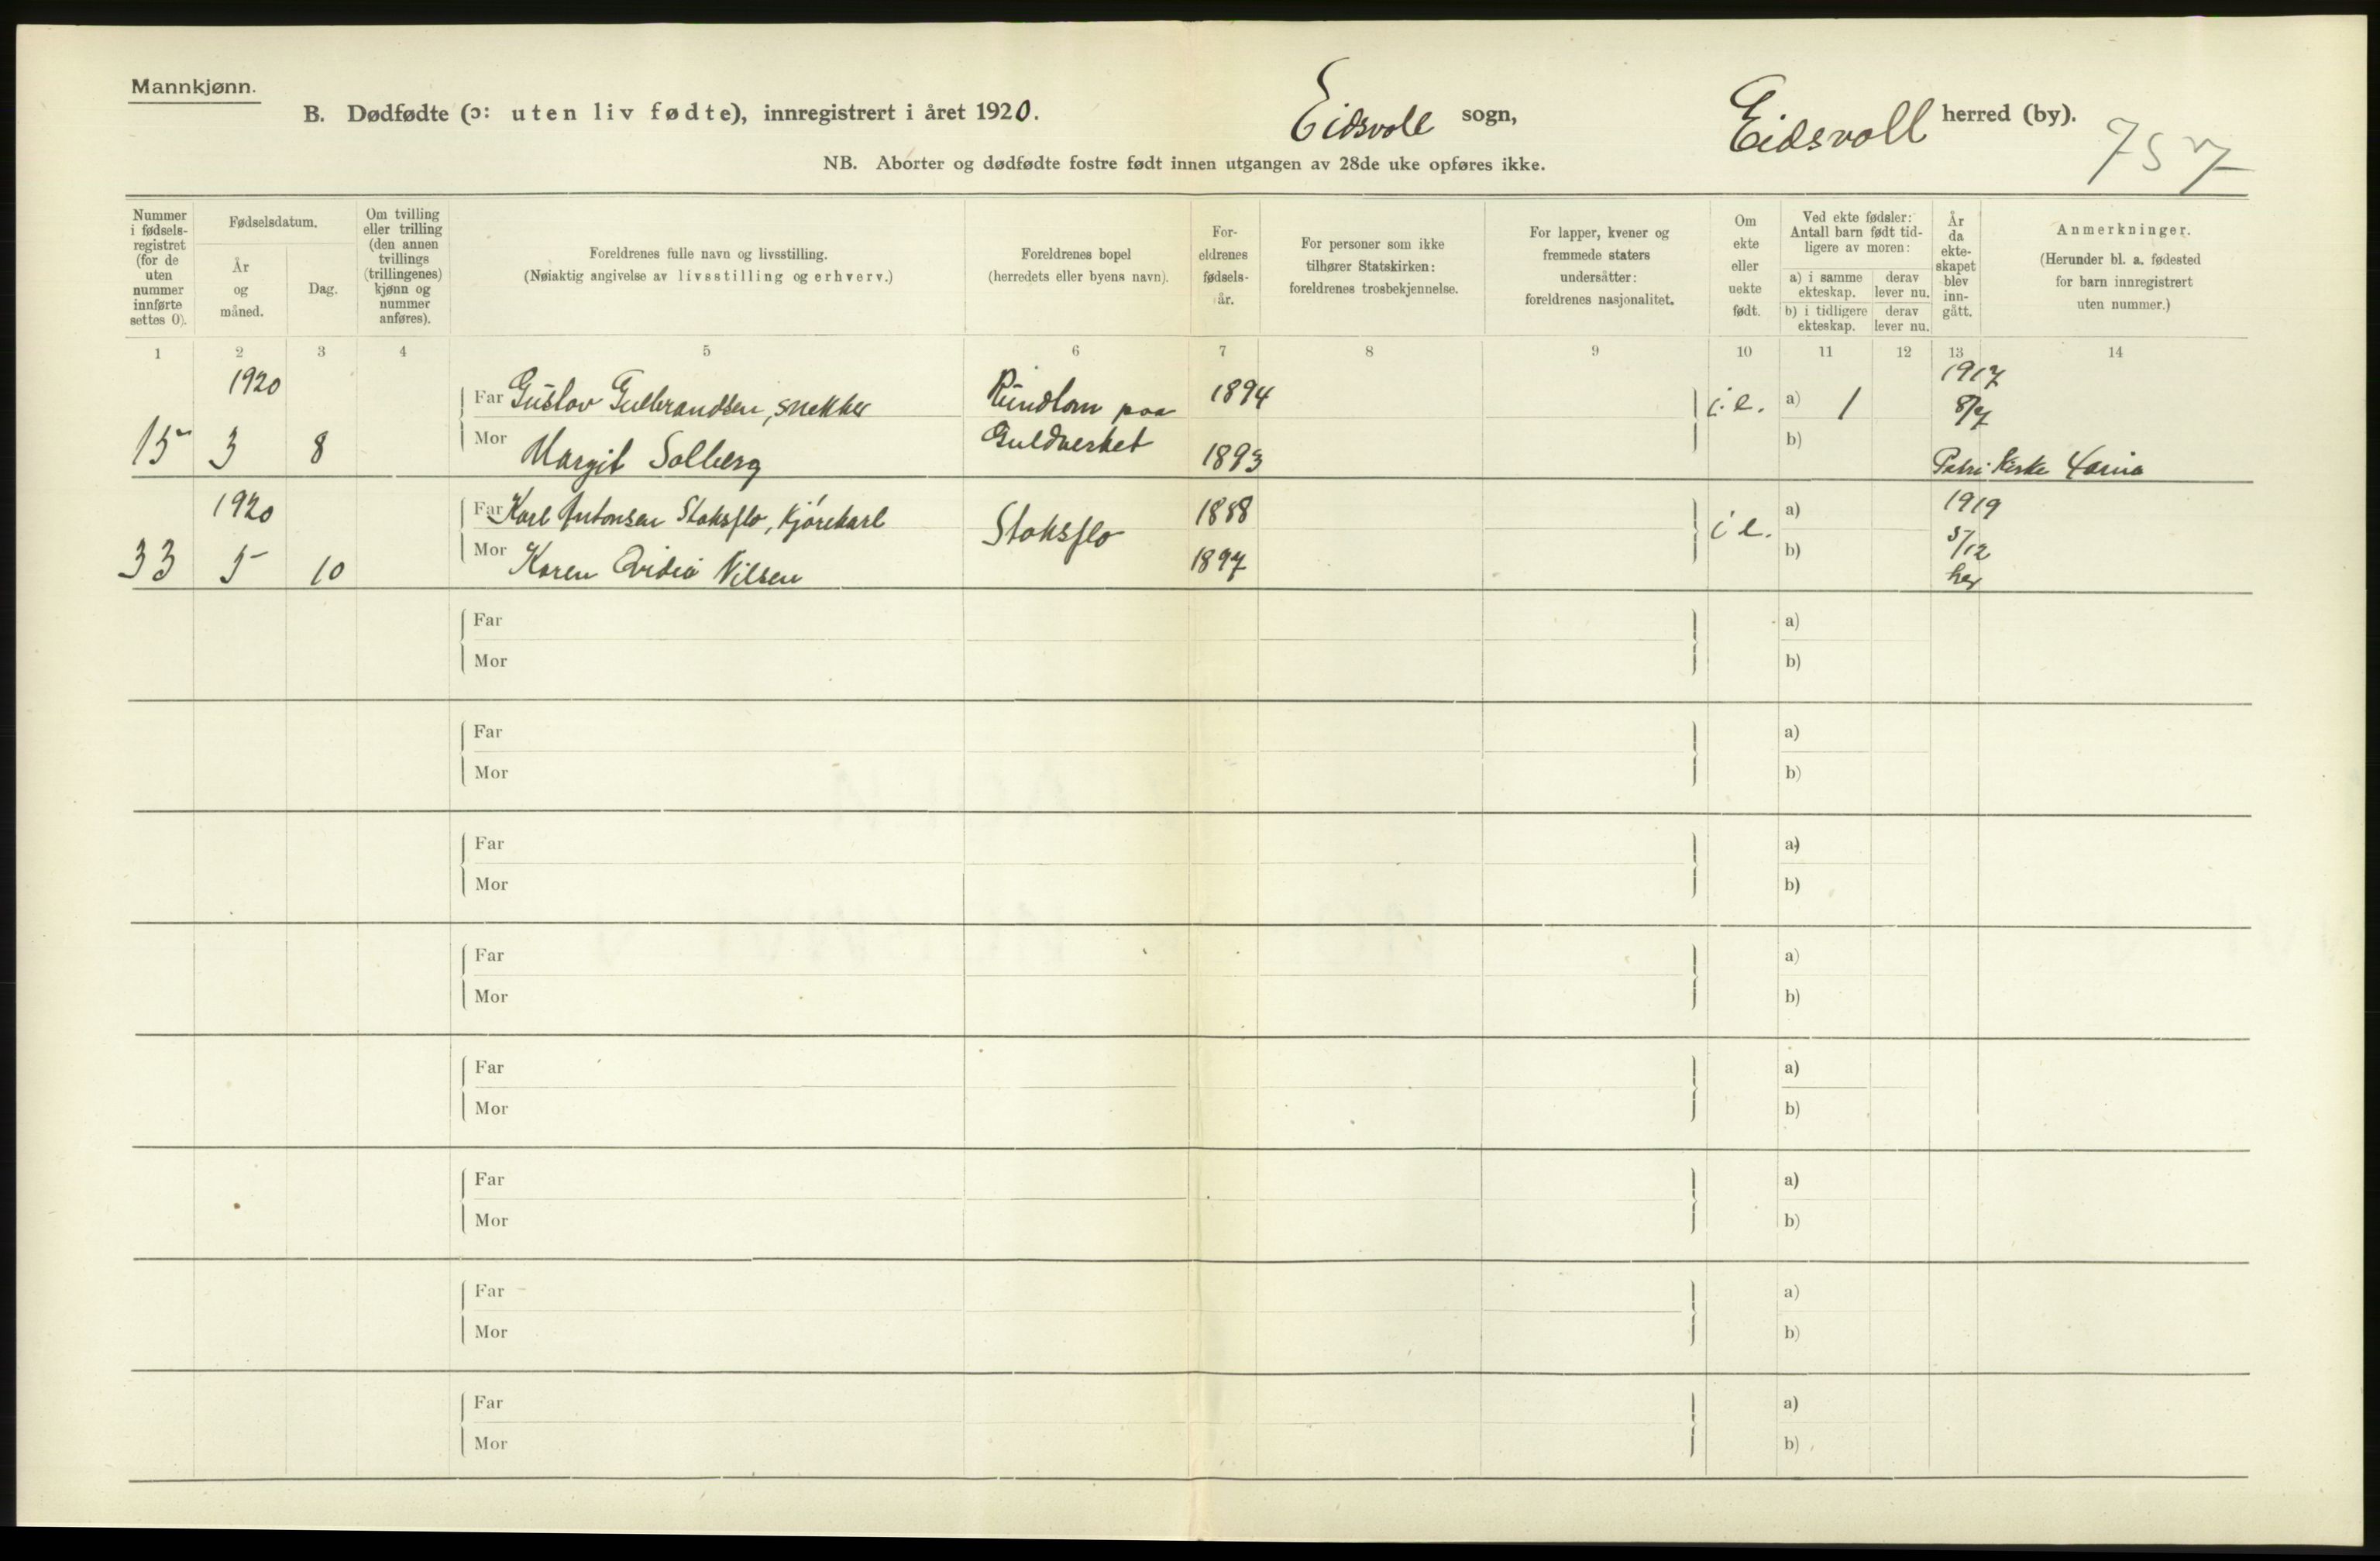 Mannkjønn.
B. Dødfødte (ɔ: uten liv fødte), innregistrert i året 1920. Eidsvoll sogn, Eidsvoll herred (by).
757
NB. Aborter og dødfødte fostre født innen utgangen av 28de uke opføres ikke.
Nummer i fødsels-registret (for de uten nummer innførte settes 0).
Fødselsdatum.
År og måned.
Dag.
Om tvilling eller trilling (den annen tvillings (trillingenes) kjønn og nummer anføres).
Foreldrenes fulle navn og livsstilling.
(Nøiaktig angivelse av livsstilling og erhverv.)
Foreldrenes bopel
(herredets eller byens navn).
For-eldrenes fødsels-år.
For personer som ikke tilhører Statskirken: foreldrenes trosbekjennelse.
For lapper, kvener og fremmede staters undersåtter: foreldrenes nasjonalitet.
Om ekte eller uekte født.
Ved ekte fødsler: Antall barn født tid-ligere av moren:
a) i samme ekteskap. derav lever nu.
b) i tidligere ekteskap. derav lever nu.
År da ekte-skapet blev inn-gått.
Anmerkninger.
(Herunder bl. a. fødested for barn innregistrert uten nummer.)
1 2 3 4 5 6 7 8 9 10 11 12 13 14
1920 Far Gustav Gulbrandsen, snekker Rundlom paa 1894 i.e. a) 1 1917
8/7
15 3 8 Mor Margit Solberg Guldverket 1893 b)
Petri Kirke
1920 Far Karl Antonsen Stoksflo, kjørekarl Stoksflo 1888 i e. a) 1919
5/12
33 5 10 Mor Karen Nilsen 1897 b) her
Far a)
Mor b)
Far a)
Mor b)
Far a)
Mor b)
Far a)
Mor b)
Far a)
Mor b)
Far a)
Mor b)
Far a)
Mor b)
Far a)
Mor b)